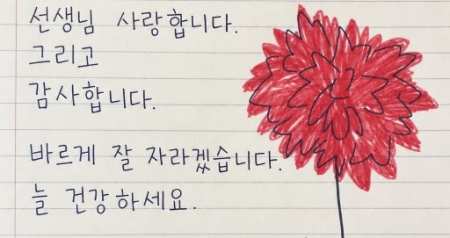 선생님 사랑합니다.
그리고
감사합니다.
바르게 잘 자라겠습니다.
늘 건강하세요.